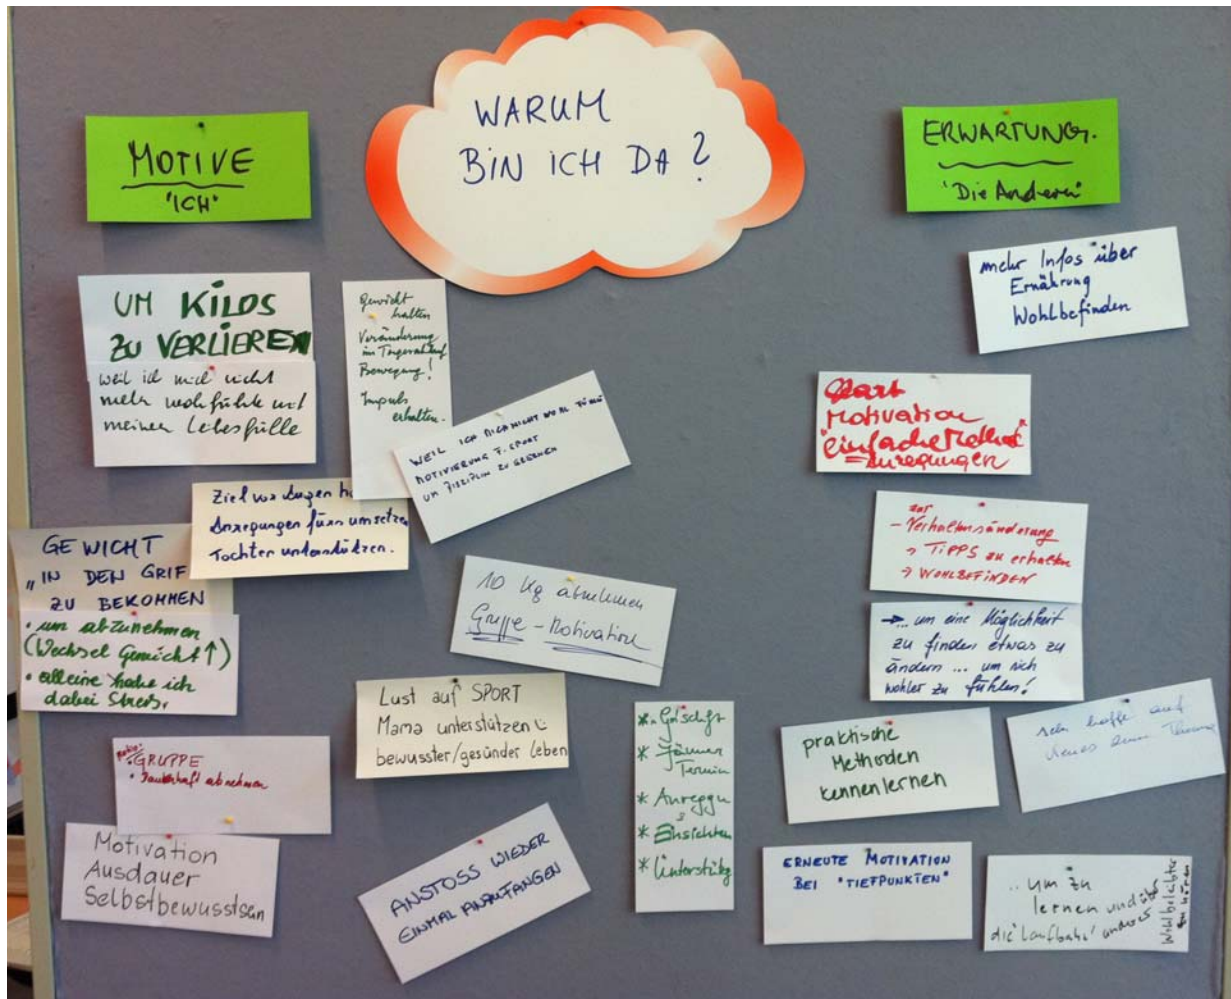 WARUM
BIN ICH DA?
MOTIVE
"ICH"
UM KILOS
ZU VERLIEREN
weil ich mich nicht
mehr wohlfühle mit
meiner Leibesfülle
Gewicht
halten
Veränderung
im Tagesablauf
Bewegung!
Impuls
erhalten.
WEIL ICH MICH NICHT WOHL FÜHLE
MOTIVIERUNG F. SPORT
UM DISZIPLIN ZU LERNEN
Ziel vor Augen
Anregungen fürs umsetzen
Tochter unterstützen.
GEWICHT
"IN DEN GRIF
ZU BEKOMMEN
• um abzunehmen
(Wechsel Gewicht ↑)
• alleine habe ich
dabei Stress.
10 Kg abnehmen
Gruppe - Motivation
Lust auf SPORT
Mama unterstützen
bewusster/gesünder leben
• GRUPPE
• Dauerhaft abnehmen
Motivation
Ausdauer
Selbstbewusstsein
ANSTOSS WIEDER
EINMAL ANZUFANGEN
* Jänner
Termin
* Anregu
* Einsichten
* Unterstützg
ERWARTUNG.
"Die Anderen"
mehr Infos über
Ernährung
Wohlbefinden
Start
Motivation
"einfache Methode"
= Anregungen
zur
- Verhaltensänderung
→ TIPPS zu erhalten
→ WOHLBEFINDEN
→ ... um eine Möglichkeit
zu finden etwas zu
ändern ... um sich
wohler zu fühlen!
praktische
Methoden
kennenlernen
ich hoffe auf
Neues zum Thema
ERNEUTE MOTIVATION
BEI "TIEFPUNKTEN"
.. um zu
lernen und über
die 'Laufbahn' anderer
Wohlbeleibter
zu hören